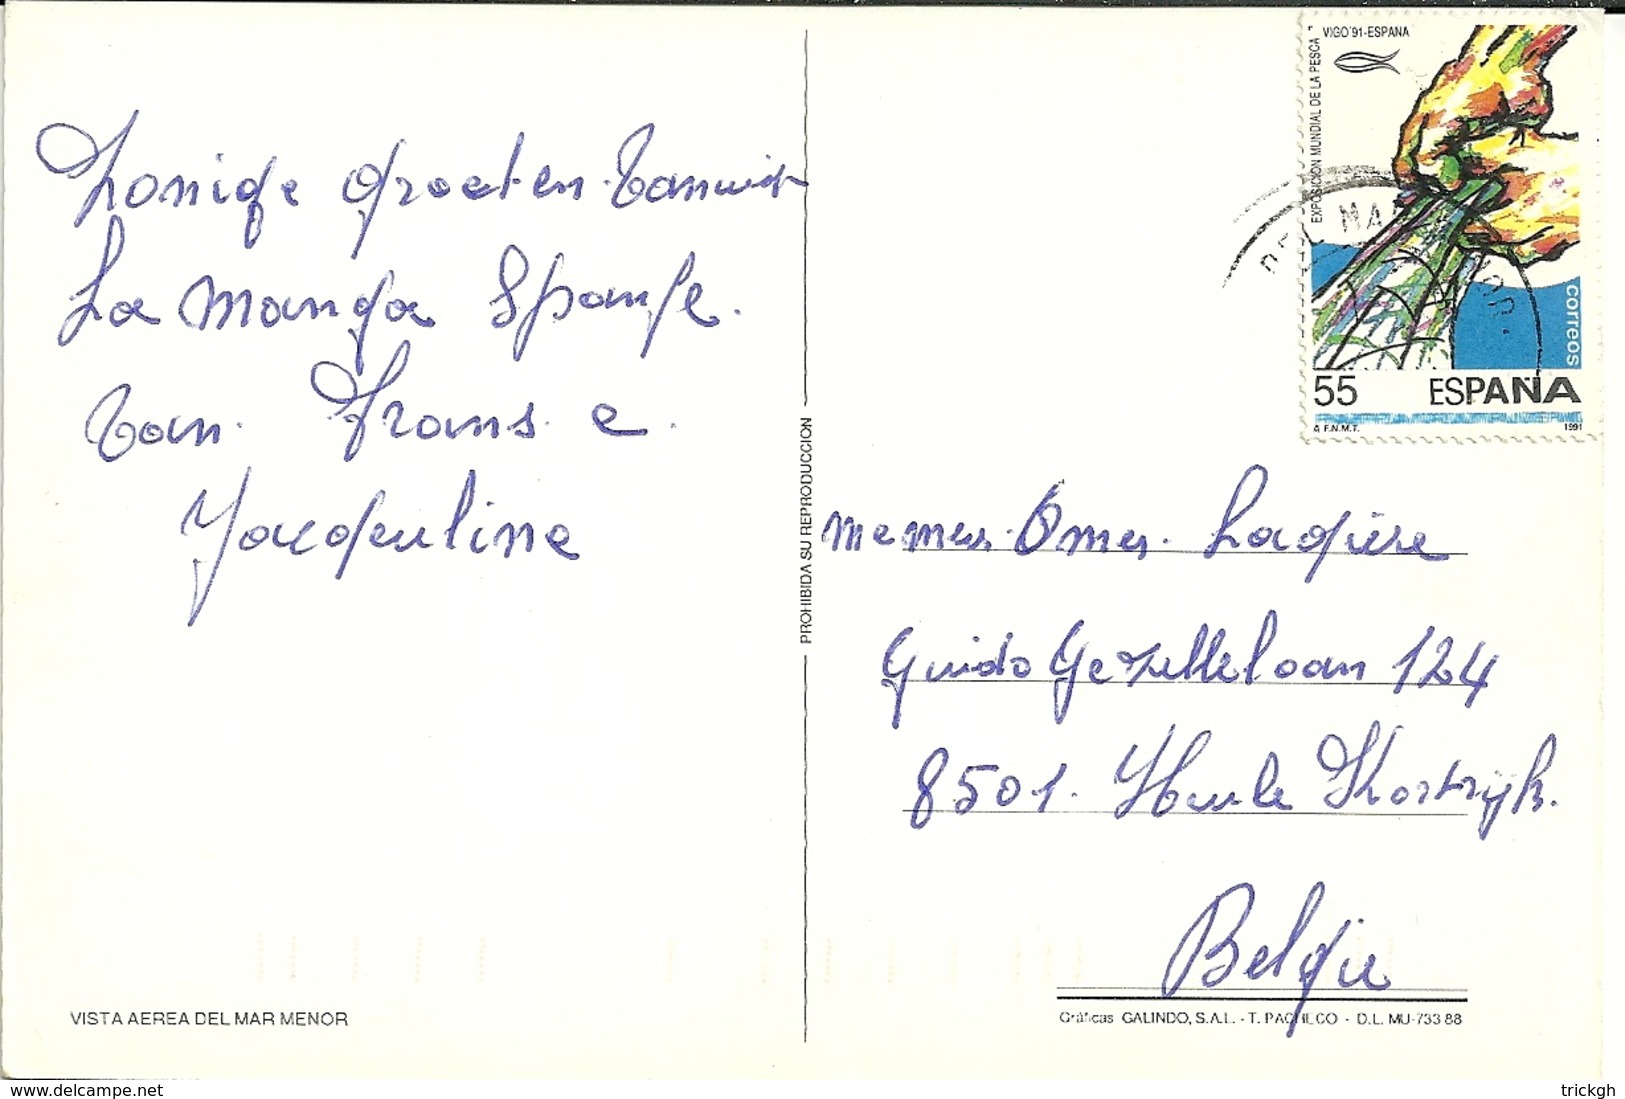 Zonige groeten vanuit
La Manga Spanje.
Van. Frans. e.
Jacqueline
VISTA AEREA DEL MAR MENOR
PROHIBIDA SU REPRODUCCION
VIGO'91-ESPAÑA
EXPOSICION MUNDIAL DE LA PESCA
correos
55 ESPAÑA
A F.N.M.T. 1991
DEL MAR
Omer. Ladière
Guido Gezellelaan 124
8501. Heule Kortrijk.
België
Gráficas GALINDO, S.A.L. - T. PACHECO - D.L. MU-733 88
delcampe.net
trickgh